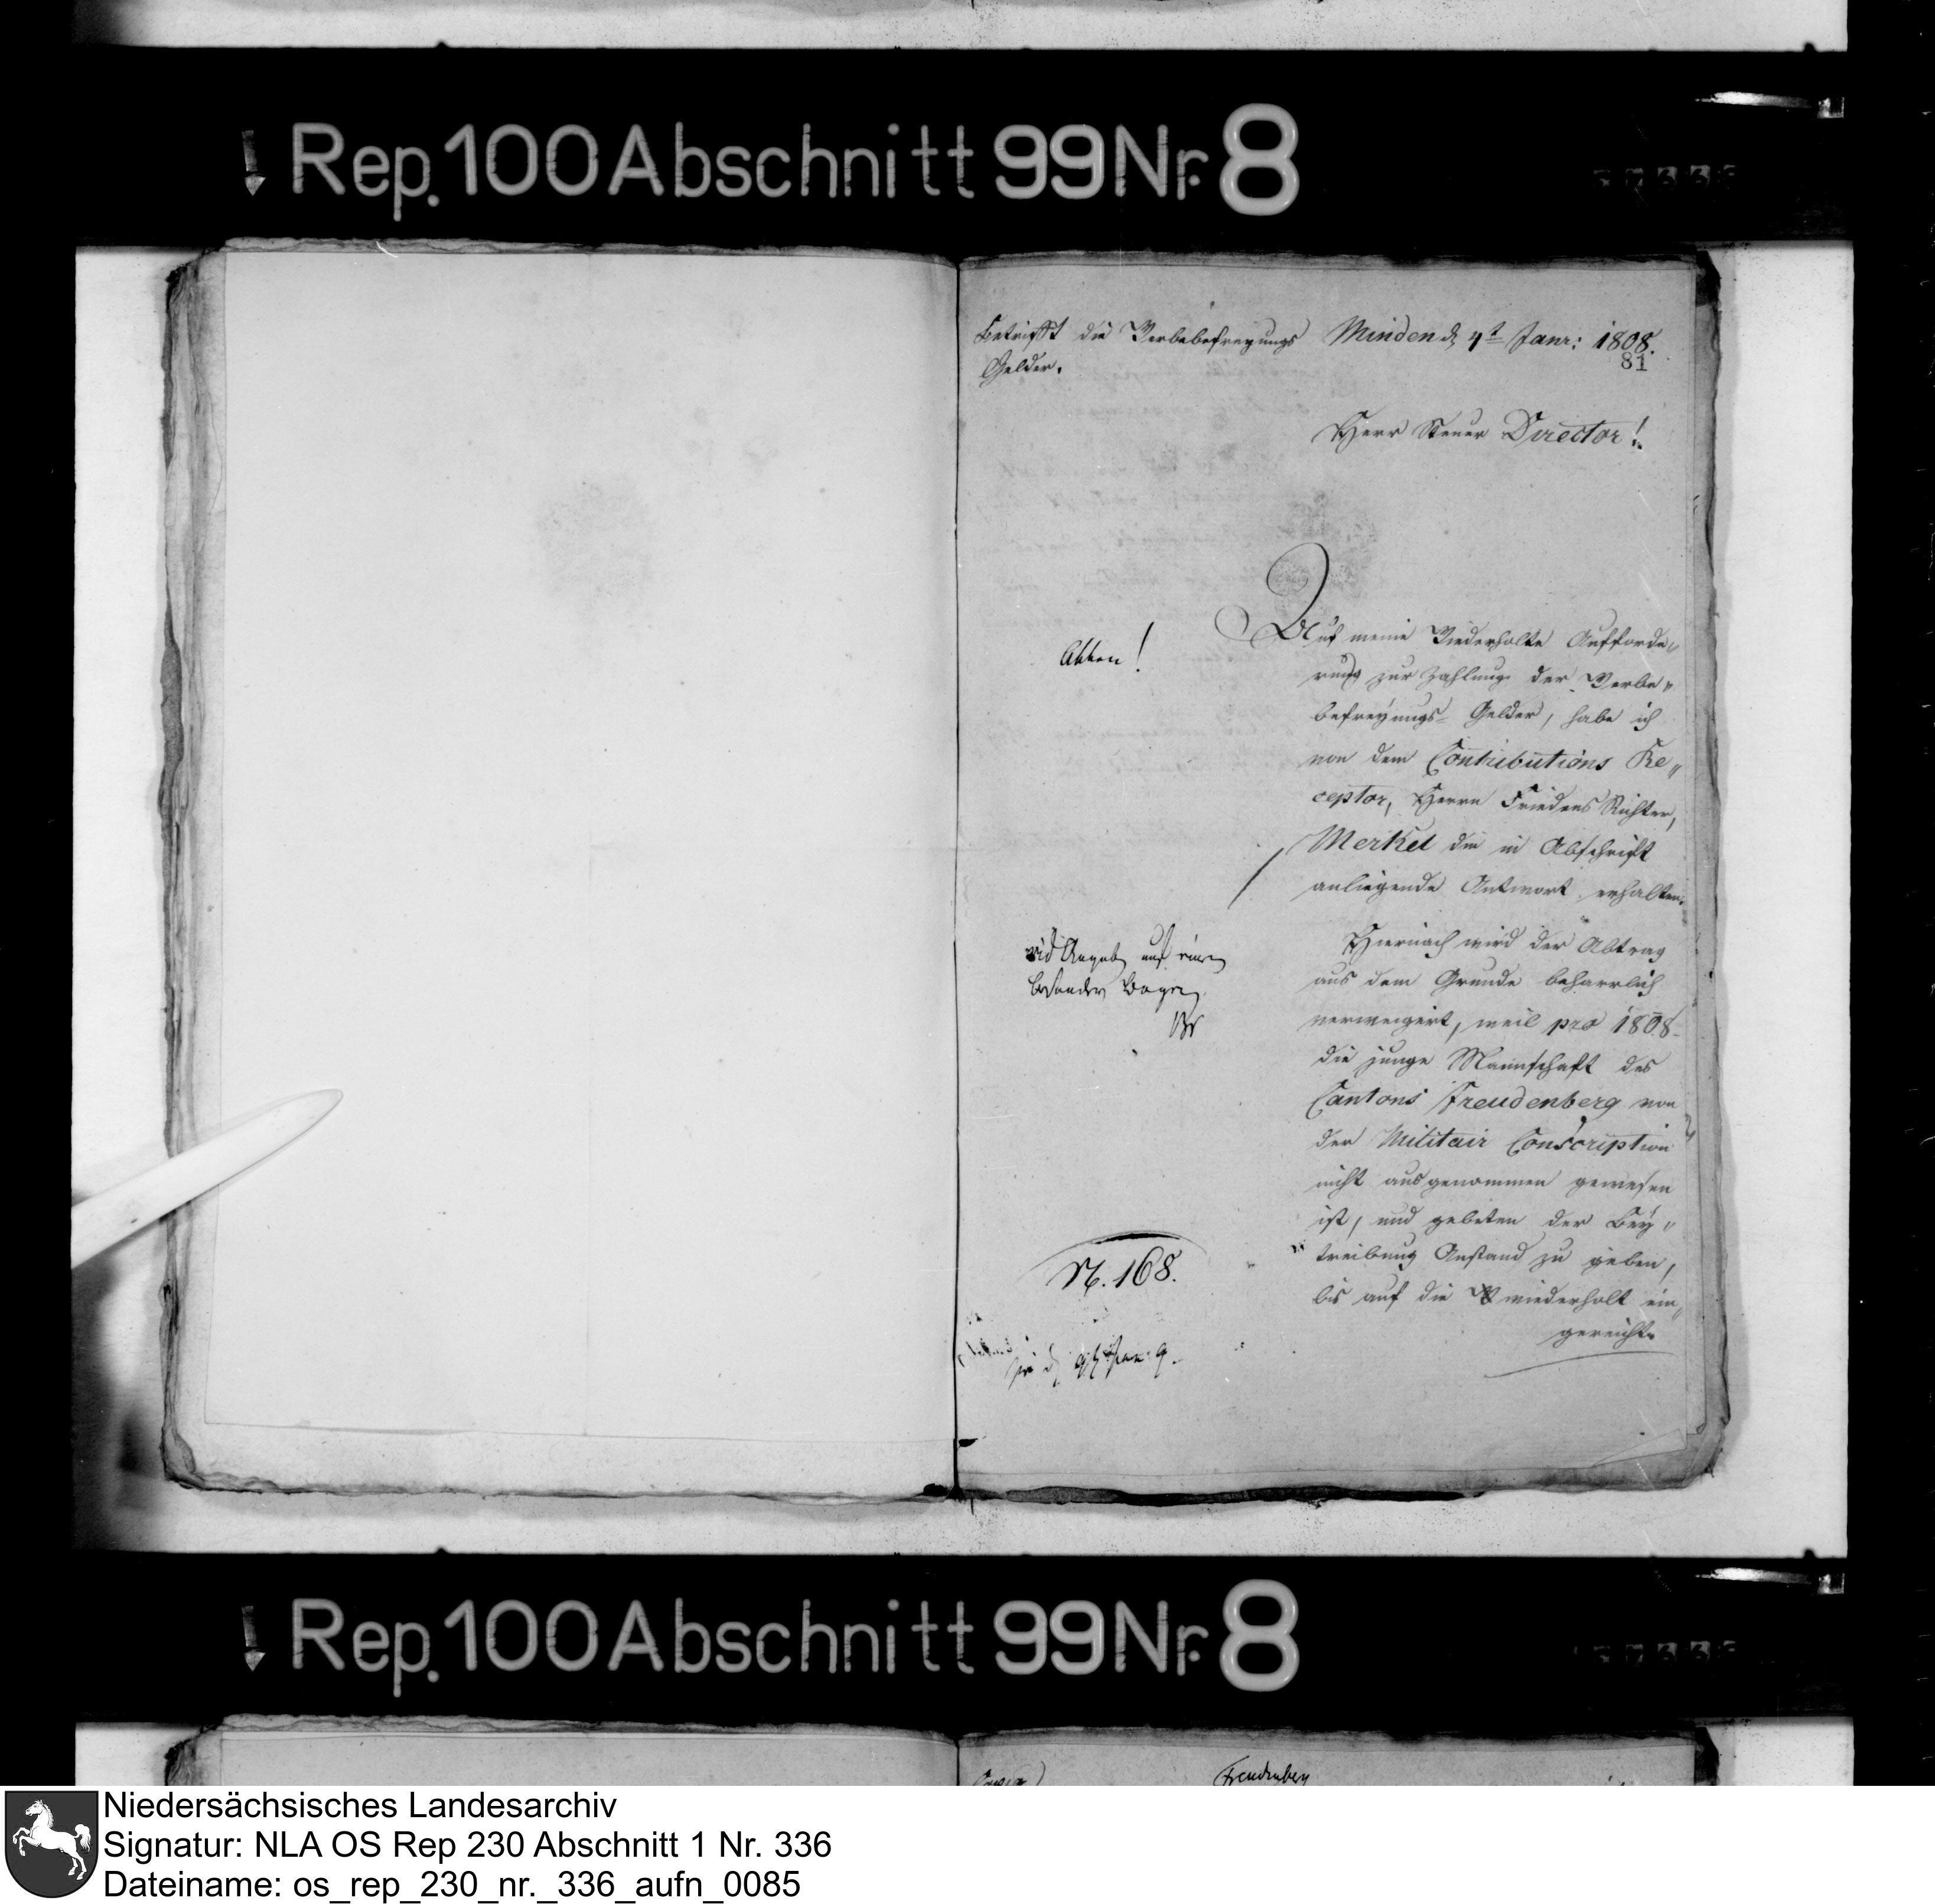 Rep. 100 Abschnitt 99 Nr. 8
Betrifft die Werbebefreyungs
Gelder.
Minden d. 4t Janr: 1808.
81
Herr Steuer Director!
Abken!
Auf meine Wiederholte Aufforde„
rung zur Zahlung der Werbe„
befreyungs- Gelder, habe ich
von dem Contributions Re„
ceptor, Herrn Friedens Richter,
Merkel die in Abschrift
anliegende Antwort erhalten.
auf einen
besondern Bogen
Hiernach wird der Abtrag
aus dem Grunde beharrlich
verweigert, weil pro 1808
die junge Mannschaft des
Cantons Freudenberg von
der Militair Conscription
nicht ausgenommen gewesen
ist, und gebeten der Bey„
treibung Anstand zu geben,
bis auf die wiederholt ein„
gereichte
N. 168.
Rep. 100 Abschnitt 99 Nr. 8
Freudenberg
Niedersächsisches Landesarchiv
Signatur: NLA OS Rep 230 Abschnitt 1 Nr. 336
Dateiname: os_rep_230_nr._336_aufn_0085